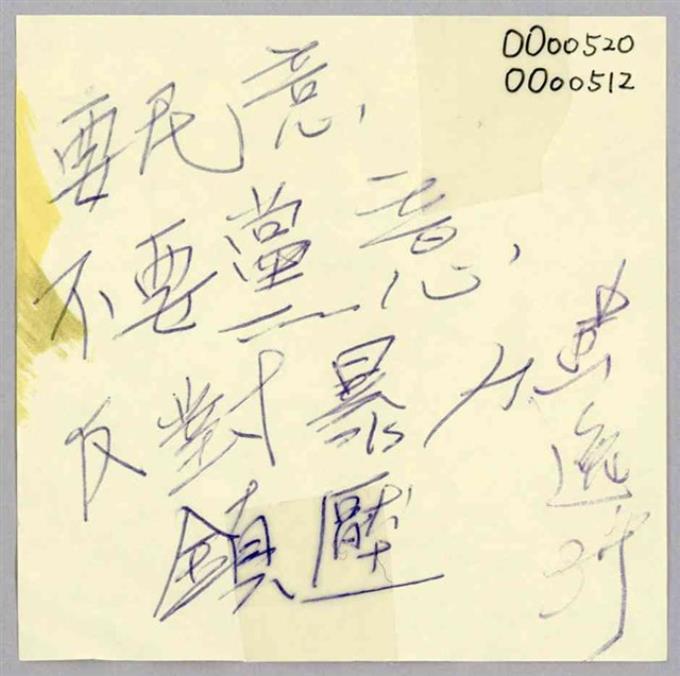 0000520
0000512
要民意,
不要黨意,
反對暴力
鎮壓